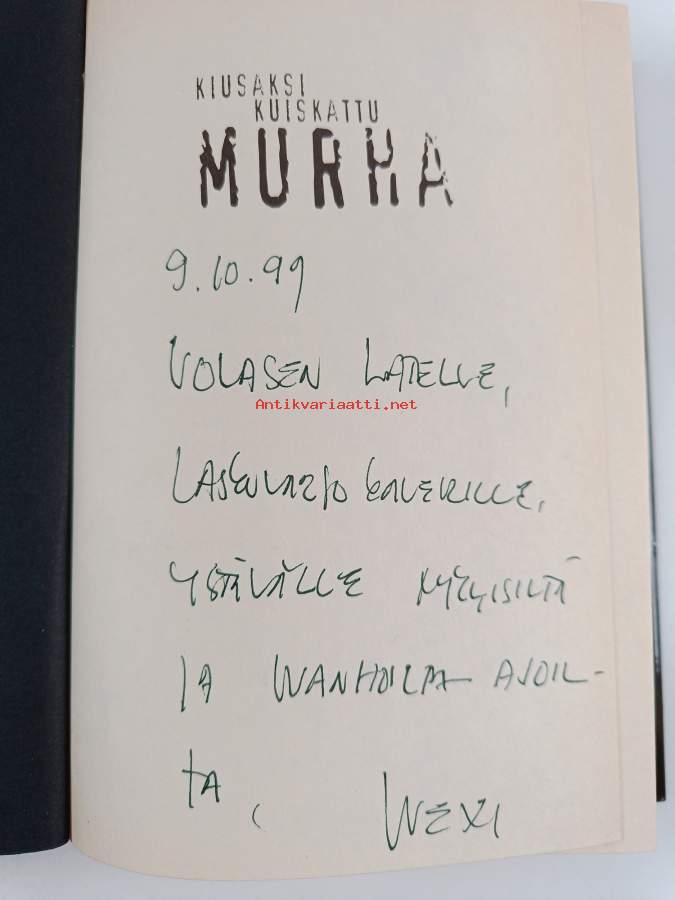 KIUSAKSI
KUISKATTU
MURHA
9.10.99
VOLASEN LATELLE,
Antikvariaatti.net
KAVERILLE,
YSTÄVÄLLE NYKYISILTÄ
JA WANHOILTA AJOIL-
TA,
WEXI